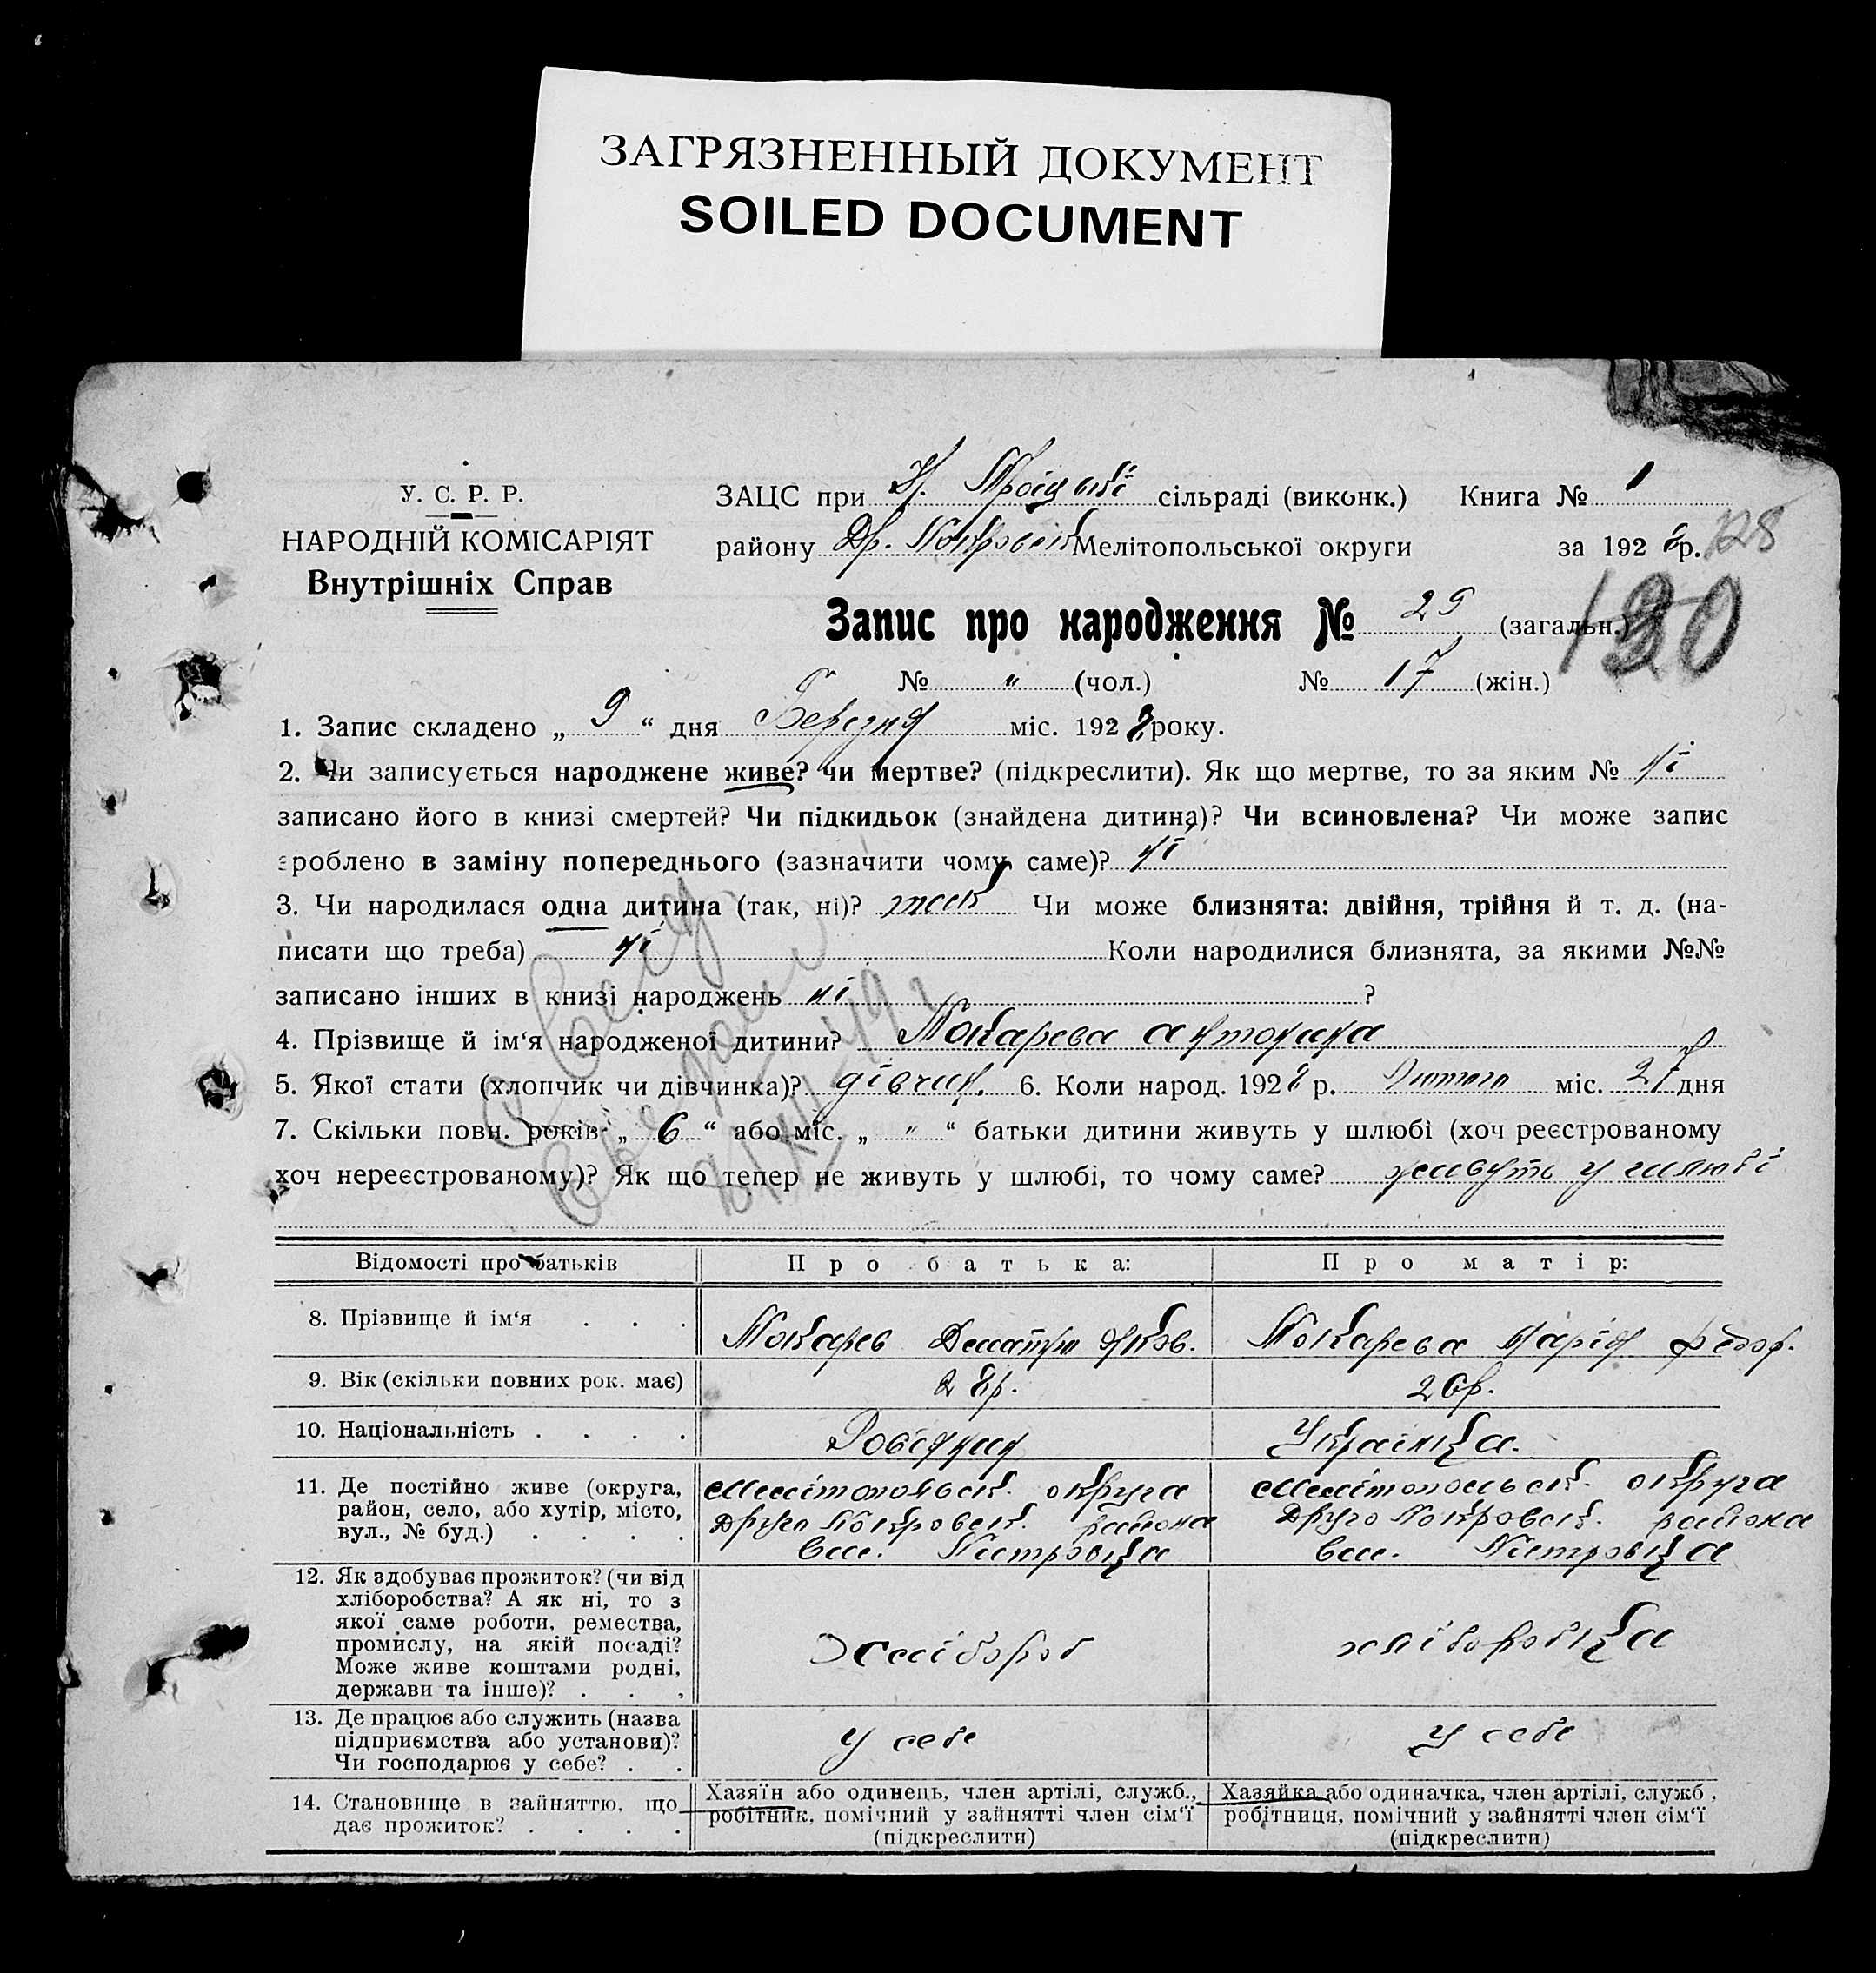 ЗАГРЯЗНЕННЫЙ ДОКУМЕНТ
SOILED DOCUMENT
У. С. Р. Р.
НАРОДНІЙ КОМІСАРІЯТ
Внутрішніх Справ
ЗАЦС при Н. сільраді (виконк.) Книга № 1
району Др. Покровськ Мелітопольської округи за 1928 р. 128
Запис про народження № 29 (загальн.) 130
№ " (чол.) № 17 (жін.)
1. Запис складено „ 9 “ дня Березня міс. 1928 року.
2. Чи записується народжене живе? чи мертве? (підкреслити). Як що мертве, то за яким № ні
записано його в книзі смертей? Чи підкидьок (знайдена дитина)? Чи всиновлена? Чи може запис
зроблено в заміну попереднього (зазначити чому саме)? ні
3. Чи народилася одна дитина (так, ні)? так Чи може близнята: двійня, трійня й т. д. (на-
писати що треба) ні Коли народилися близнята, за якими №№
записано інших в книзі народжень ні ?
4. Прізвище й ім‘я народженої дитини? Токарева антонина
5. Якої стати (хлопчик чи дівчинка)? дівчин. 6. Коли народ. 1928 р. Лютого міс. 27 дня
7. Скільки повн. років „ 6 “ або міс. „ " “ батьки дитини живуть у шлюбі (хоч реєстрованому
хоч нереєстрованому)? Як що тепер не живуть у шлюбі, то чому саме? живуть у шлюбі
Відомості про батьків Про батька: Про матір:
8. Прізвище й ім‘я . . . Токарев Дмитро Яков. Токарева Марія Федор.
9. Вік (скільки повних рок. має) 28р. 26р.
10. Національність . . . . Українка.
11. Де постійно живе (округа, район, село, або хутір, місто, вул., № буд.) . . . .
Мелітопольськ. округа Друго Покровськ. района сел.
Мелітопольськ. округа Друго Покровськ. района сел.
12. Як здобуває прожиток? (чи від хліборобства? А як ні, то з якої саме роботи, ремества, промислу, на якій посаді? Може живе коштами родні, держави та інше)? . . .
Хлібороб хліборобка
13. Де працює або служить (назва підприємства або установи)? Чи господарює у себе? . .
У себе У себе
14. Становище в зайняттю, що дає прожиток? . . . .
Хазяїн або одинець, член артілі, служб., робітник, помічний у зайнятті член сім‘ї (підкреслити)
Хазяйка або одиначка, член артілі, служб., робітниця, помічний у зайнятті член сім‘ї (підкреслити)